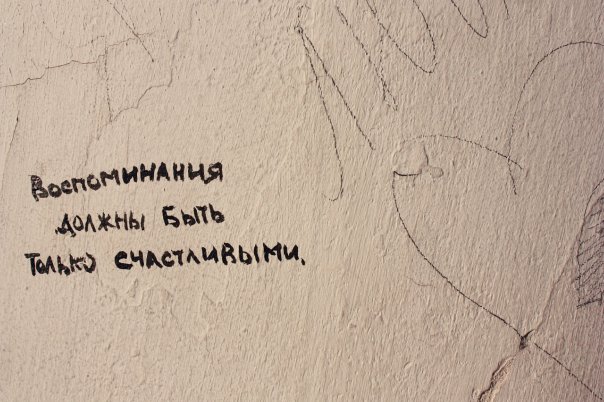 Воспоминания
должны быть
только счастливыми.